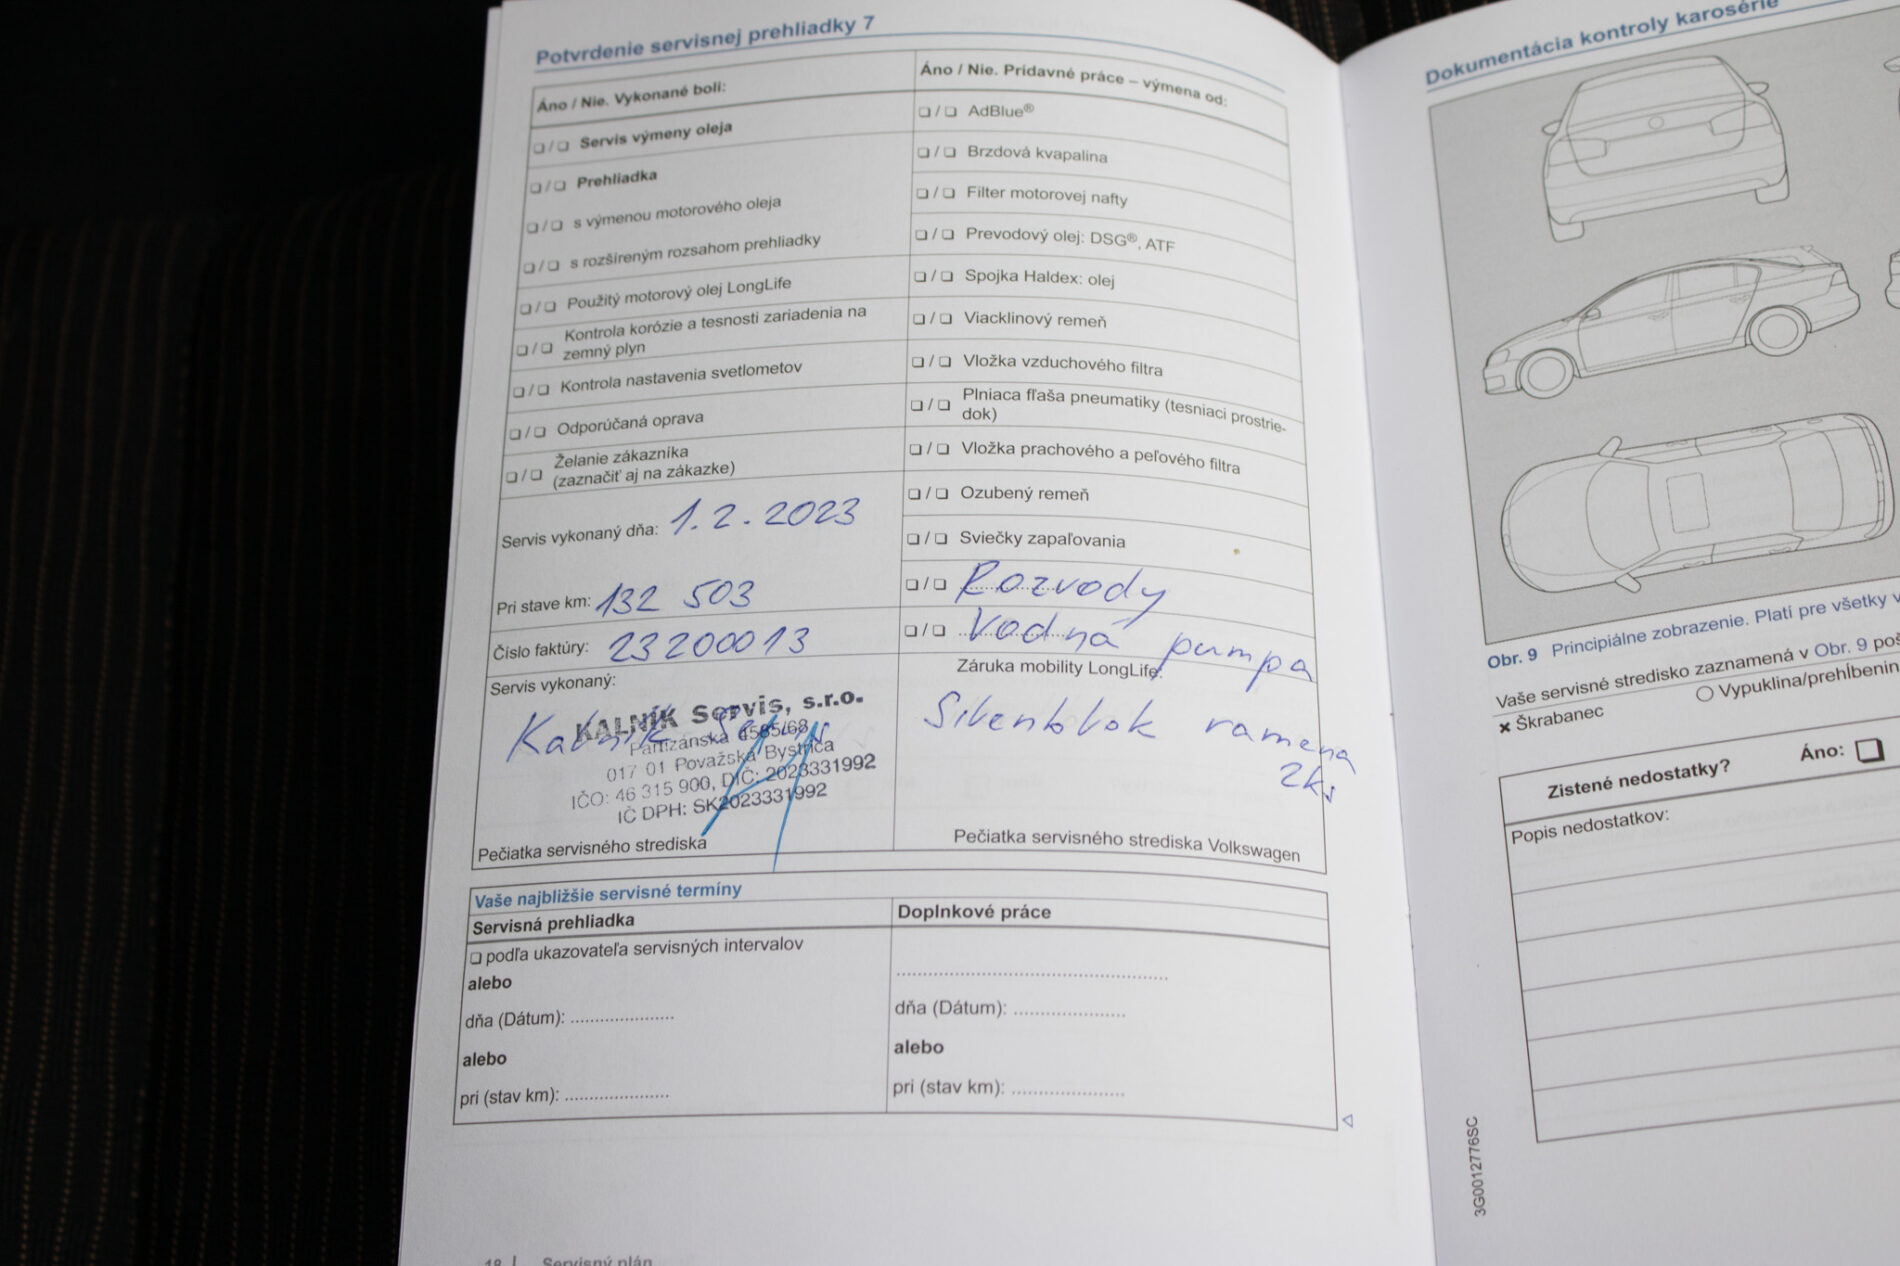 Potvrdenie servisnej prehliadky 7
Áno / Nie. Vykonané boli:
❏ / ❏ Servis výmeny oleja
❏ / ❏ Prehliadka
❏ / ❏ s výmenou motorového oleja
❏ / ❏ s rozšíreným rozsahom prehliadky
❏ / ❏ Použitý motorový olej LongLife
❏ / ❏ Kontrola korózie a tesnosti zariadenia na
zemný plyn
❏ / ❏ Kontrola nastavenia svetlometov
❏ / ❏ Odporúčaná oprava
❏ / ❏ Želanie zákazníka
(zaznačiť aj na zákazke)
Servis vykonaný dňa: 1. 2. 2023
Pri stave km: 132 503
Číslo faktúry: 23200013
Servis vykonaný:
Kalník Servis
KALNÍK Servis, s.r.o.
Partizánska 4585/68
017 01 Považská Bystrica
IČO: 46 315 900, DIČ: 2023331992
IČ DPH: SK2023331992
Pečiatka servisného strediska
Áno / Nie. Prídavné práce – výmena od:
❏ / ❏ AdBlue®
❏ / ❏ Brzdová kvapalina
❏ / ❏ Filter motorovej nafty
❏ / ❏ Prevodový olej: DSG®, ATF
❏ / ❏ Spojka Haldex: olej
❏ / ❏ Viacklinový remeň
❏ / ❏ Vložka vzduchového filtra
❏ / ❏ Plniaca fľaša pneumatiky (tesniaci prostrie-
dok)
❏ / ❏ Vložka prachového a peľového filtra
❏ / ❏ Ozubený remeň
❏ / ❏ Sviečky zapaľovania
❏ / ❏ Rozvody
❏ / ❏ Vodná pumpa
Záruka mobility LongLife:
Silenblok ramena
2ks
Pečiatka servisného strediska Volkswagen
Vaše najbližšie servisné termíny
Servisná prehliadka
❏ podľa ukazovateľa servisných intervalov
alebo
dňa (Dátum): .....................
alebo
pri (stav km): .....................
Doplnkové práce
........................................................
dňa (Dátum): .......................
alebo
pri (stav km): .......................
18 Servisný plán
Dokumentácia kontroly karosérie
Obr. 9 Principiálne zobrazenie. Platí pre všetky
Vaše servisné stredisko zaznamená v Obr. 9
✖ Škrabanec
○ Vypuklina/prehĺbenin
Zistené nedostatky? Áno: ❏
Popis nedostatkov:
3G0012776SC